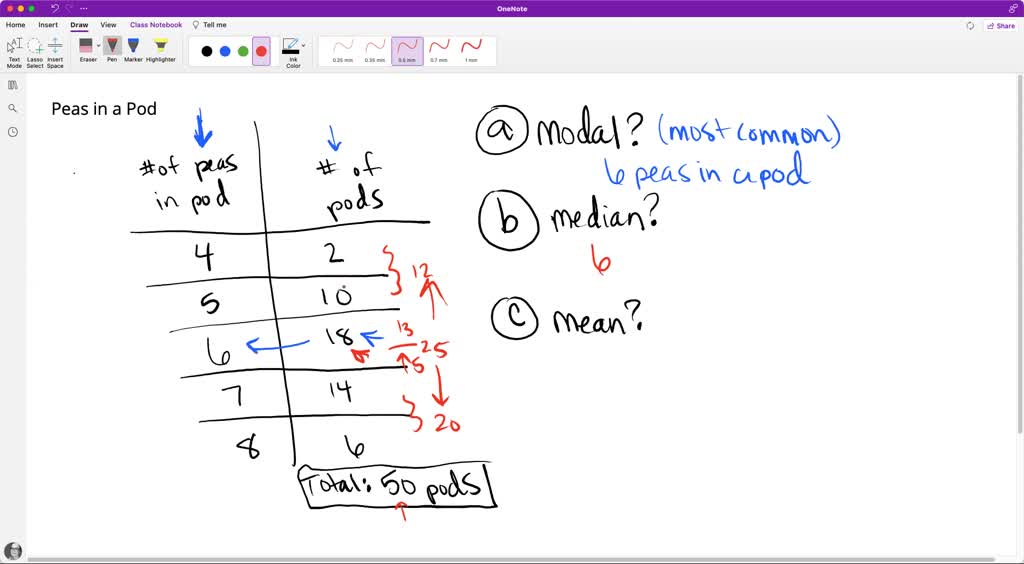 OneNote
Home Insert Draw View Class Notebook Tell me
Share
Text Mode
Lasso Select
Insert Space
Eraser
Pen
Marker
Highlighter
Ink Color
0.25 mm
0.35 mm
0.5 mm
0.7 mm
1 mm
Peas in a Pod
# of peas in pod
# of pods
4 2
5 10
6 18
7 14
8 6
12
13
25
5
20
Total: 50 pods
a modal? (most common)
6 peas in a pod
b median?
6
c mean?